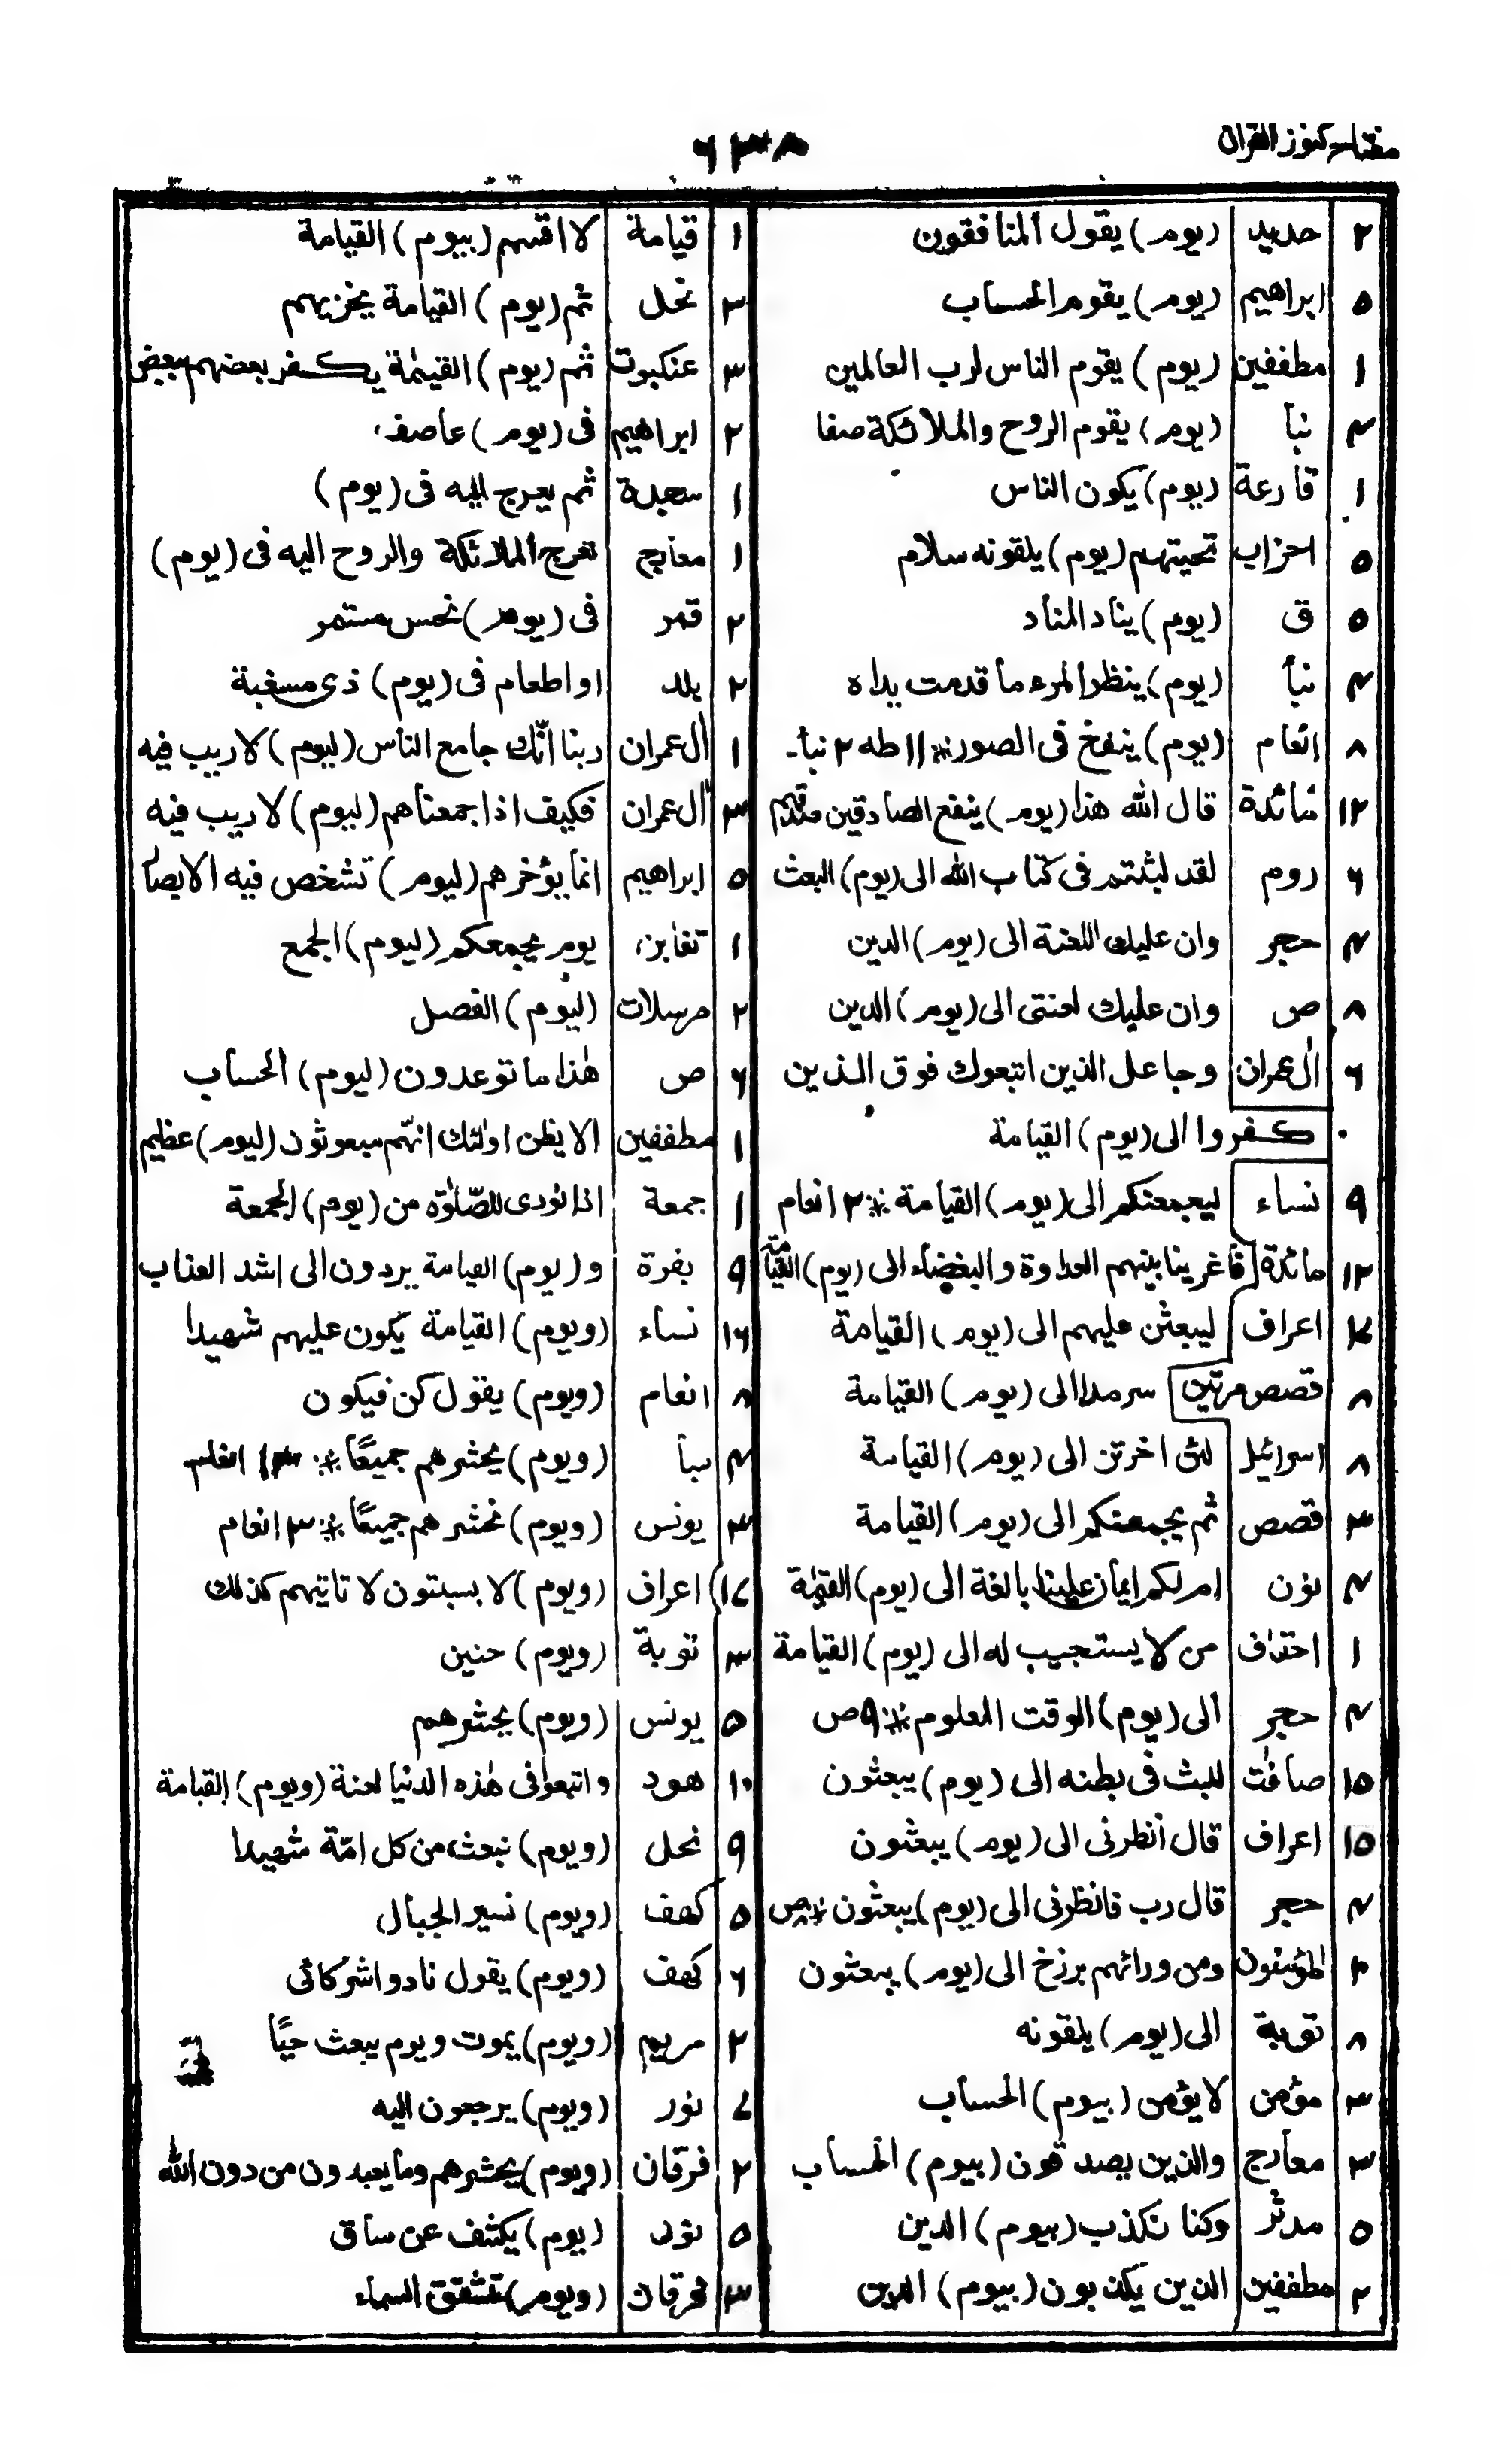 مفتاح كنوز القران
۶۳۸
۲ حديد (يوم) يقول المنافقون
۵ ابراهيم (يوم) يقوم الحساب
۱ مطففين (يوم) يقوم الناس لرب العالمين
۴ نبأ (يوم) يقوم الروح والملائكة صفا
۱ قارعة (يوم) يكون الناس
۵ احزاب تحيتهم (يوم) يلقونه سلام
۵ ق (يوم) يناد المناد
۴ نبأ (يوم) ينظر المرء ما قدمت يداه
۸ انعام (يوم) ينفخ فى الصور ※ ۱۱ طه ۲ نبأ۔
۱۲ مائدة قال الله هذا (يوم) ينفع الصادقين صدقهم
۶ روم لقد لبثتم فى كتاب الله الى (يوم) البعث
۴ حجر وان عليك اللعنة الى (يوم) الدين
۸ ص وان عليك لعنتى الى (يوم) الدين
۶ ال عمران وجاعل الذين اتبعوك فوق الذين
كفروا الى (يوم) القيامة
۹ نساء ليجمعنكم الى (يوم) القيامة ※ ۲ انعام
۱۲ مائدة فاغرينا بينهم العداوة والبغضاء الى (يوم) القيامة
اعراف ليبعثن عليهم الى (يوم) القيامة
۸ قصص مرتين سرمدا الى (يوم) القيامة
۸ اسرائيل لئن اخرتن الى (يوم) القيامة
۳ قصص ثم يجمعنكم الى (يوم) القيامة
۴ نون ام لكم ايمان علينا بالغة الى (يوم) القيٰمة
۱ احقاف من لا يستجيب له الى (يوم) القيامة
۴ حجر الى (يوم) الوقت المعلوم ※ ۹ ص
۱۵ صافٰت للبث فى بطنه الى (يوم) يبعثون
۱۵ اعراف قال انظرنى الى (يوم) يبعثون
۴ حجر قال رب فانظرنى الى (يوم) يبعثون ص
المؤمنون ومن ورائهم برزخ الى (يوم) يبعثون
۸ توبة الى (يوم) يلقونه
۳ مؤمن لا يؤمن (بيوم) الحساب
۳ معارج والذين يصدقون (بيوم) الحساب
۵ مدثر وكنا نكذب (بيوم) الدين
۲ مطففين الذين يكذبون (بيوم) الدين
۱ قيامة لا اقسم (بيوم) القيامة
۳ نحل ثم (يوم) القيامة يخزيهم
۳ عنكبوت ثم (يوم) القيٰمة يكفر بعضهم ببعض
۲ ابراهيم فى (يوم) عاصف
۱ سجدة ثم يعرج اليه فى (يوم)
۱ معارج تعرج الملائكة والروح اليه فى (يوم)
۲ قمر فى (يوم) نحس مستمر
۲ بلد او اطعام فى (يوم) ذى مسغبة
۱ ال عمران ربنا انّك جامع الناس (ليوم) لا ريب فيه
۳ ال عمران فكيف اذا جمعناهم (ليوم) لا ريب فيه
۵ ابراهيم انما يؤخرهم (ليوم) تشخص فيه الابصار
۱ تغابن يوم يجمعكم (ليوم) الجمع
۲ مرسلات (ليوم) الفصل
۶ ص هٰذا ما توعدون (ليوم) الحساب
۱ مطففين الا يظن اولئك انهّم مبعوثون (ليوم) عظيم
۱ جمعة اذا نودى للصّلوٰة من (يوم) الجمعة
۹ بقرة و (يوم) القيامة يردون الى اشد العذاب
۱۶ نساء (ويوم) القيامة يكون عليهم شهيدا
۸ انعام (ويوم) يقول كن فيكون
۴ سبأ (ويوم) يحشرهم جميعًا ※ انعام
۳ يونس (ويوم) نحشرهم جميعًا ※ ۳ انعام
۱۷ اعراف (ويوم) لا يسبتون لا تاتيهم كذلك
۳ توبة (ويوم) حنين
۵ يونس (ويوم) يحشرهم
۱۰ هود واتبعوا فى هٰذه الدنيا لعنة (ويوم) القيامة
۹ نحل (ويوم) نبعث من كل امّة شهيدا
۵ كهف (ويوم) نسير الجبال
۶ كهف (ويوم) يقول نادوا شركائى
۲ مريم (ويوم) يموت ويوم يبعث حيًّا
۷ نور (ويوم) يرجعون اليه
۲ فرقان (ويوم) يحشرهم وما يعبدون من دون الله
۵ نون (يوم) يكشف عن ساق
۳ فرقان (ويوم) تشقق السماء